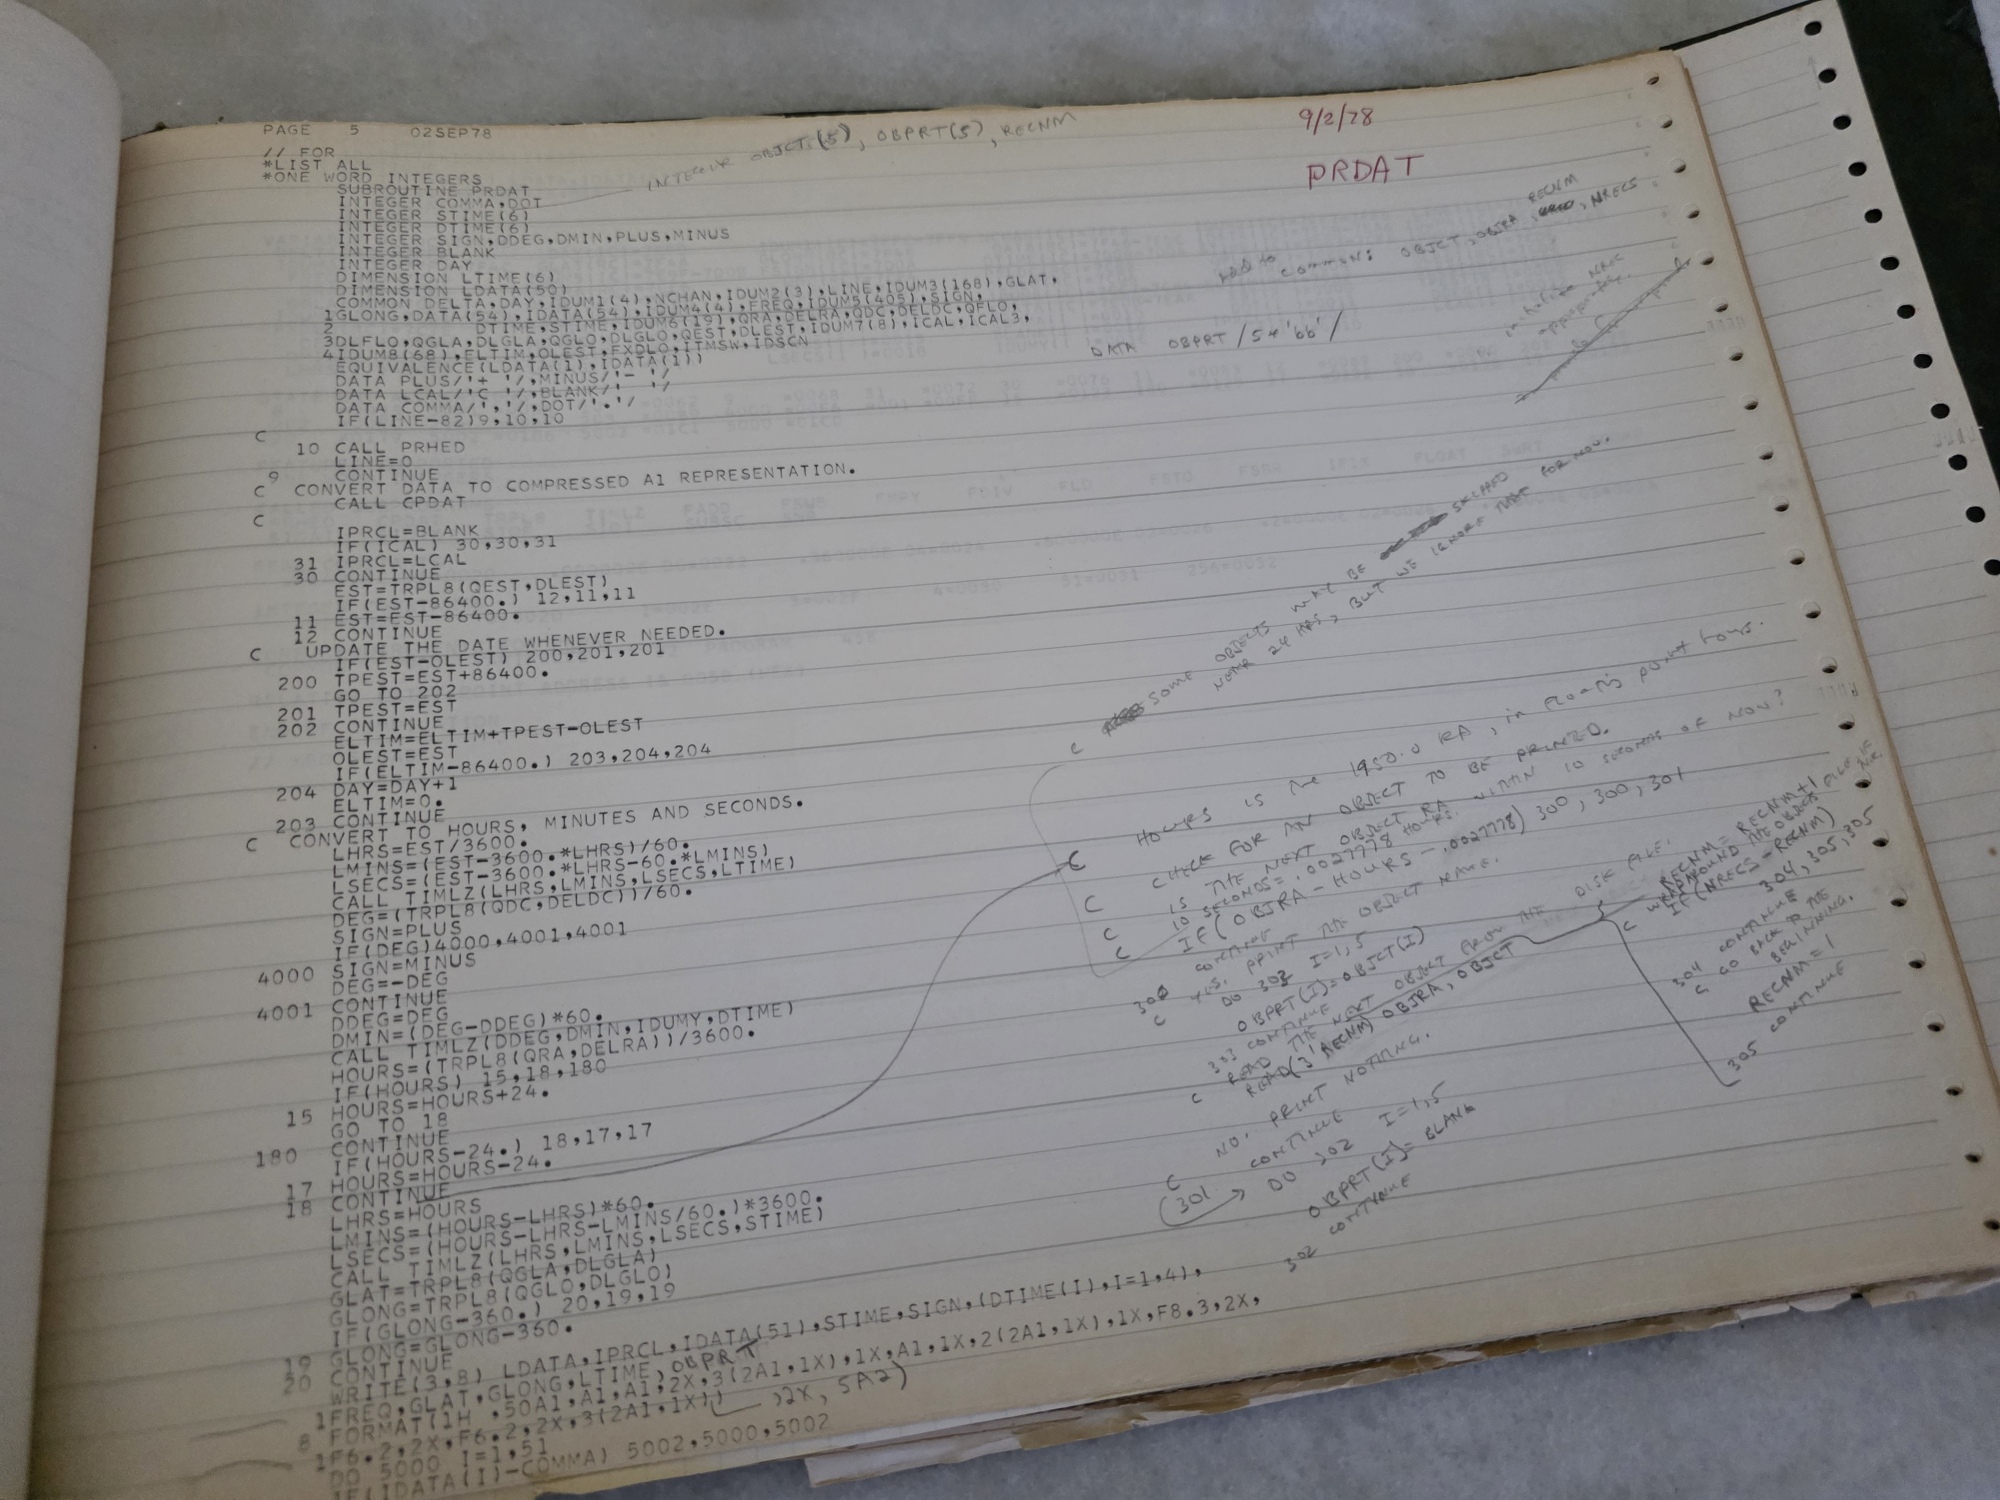 PAGE 5 02SEP78
// FOR
*LIST ALL
*ONE WORD INTEGERS
SUBROUTINE PRDAT
INTEGER COMMA,DOT
INTEGER STIME(6)
INTEGER DTIME(6)
INTEGER SIGN,DDEG,DMIN,PLUS,MINUS
INTEGER BLANK
INTEGER DAY
DIMENSION LTIME(6)
DIMENSION LDATA(50)
COMMON DELTA,DAY,IDUM1(4),NCHAN,IDUM2(3),LINE,IDUM3(168),GLAT,
1GLONG,DATA(54),IDATA(54),IDUM4(4),FREQ,IDUM5(405),SIGN,
2 DTIME,STIME,IDUM6(19),QRA,DELRA,QDC,DELDC,QFLO,
3DLFLO,QGLA,DLGLA,QGLO,DLGLO,QEST,DLEST,IDUM7(8),ICAL,ICAL3,
4IDUM8(68),ELTIM,OLEST,FXDLO,ITMSW,IDSCN
EQUIVALENCE(LDATA(1),IDATA(1))
DATA PLUS/'+ '/,MINUS/'- '/
DATA LCAL/'C '/,BLANK/' '/
DATA COMMA/','/,DOT/'.'/
IF(LINE-82)9,10,10
C
10 CALL PRHED
LINE=0
9 CONTINUE
C CONVERT DATA TO COMPRESSED A1 REPRESENTATION.
CALL CPDAT
C
IPRCL=BLANK
IF(ICAL) 30,30,31
31 IPRCL=LCAL
30 CONTINUE
EST=TRPL8(QEST,DLEST)
IF(EST-86400.) 12,11,11
11 EST=EST-86400.
12 CONTINUE
C UPDATE THE DATE WHENEVER NEEDED.
IF(EST-OLEST) 200,201,201
200 TPEST=EST+86400.
GO TO 202
201 TPEST=EST
202 CONTINUE
ELTIM=ELTIM+TPEST-OLEST
OLEST=EST
IF(ELTIM-86400.) 203,204,204
204 DAY=DAY+1
ELTIM=0.
203 CONTINUE
C CONVERT TO HOURS, MINUTES AND SECONDS.
LHRS=EST/3600.
LMINS=(EST-3600.*LHRS)/60.
LSECS=(EST-3600.*LHRS-60.*LMINS)
CALL TIMLZ(LHRS,LMINS,LSECS,LTIME)
DEG=(TRPL8(QDC,DELDC))/60.
SIGN=PLUS
IF(DEG)4000,4001,4001
4000 SIGN=MINUS
DEG=-DEG
4001 CONTINUE
DDEG=DEG
DMIN=(DEG-DDEG)*60.
CALL TIMLZ(DDEG,DMIN,IDUMY,DTIME)
HOURS=(TRPL8(QRA,DELRA))/3600.
IF(HOURS) 15,18,180
15 HOURS=HOURS+24.
GO TO 18
180 CONTINUE
IF(HOURS-24.) 18,17,17
17 HOURS=HOURS-24.
18 CONTINUE
LHRS=HOURS
LMINS=(HOURS-LHRS)*60.
LSECS=(HOURS-LHRS-LMINS/60.)*3600.
CALL TIMLZ(LHRS,LMINS,LSECS,STIME)
GLAT=TRPL8(QGLA,DLGLA)
GLONG=TRPL8(QGLO,DLGLO)
IF(GLONG-360.) 20,19,19
19 GLONG=GLONG-360.
20 CONTINUE
WRITE(3,8) LDATA,IPRCL,IDATA(51),STIME,SIGN,(DTIME(I),I=1,4),
1FREQ,GLAT,GLONG,LTIME, OBPRT
8 FORMAT(1H ,50A1,A1,A1,2X,3(2A1,1X),1X,A1,1X,2(2A1,1X),1X,F8.3,2X,
1F6.2,2X,F6.2,2X,3(2A1,1X)) ,2X, 5A2)
DO 5000 I=1,51
IF(IDATA(I)-COMMA) 5002,5000,5002
INTEGER OBJCT(5), OBPRT(5), RECNM
9/2/78
PRDAT
ADD TO COMMON: OBJCT, OBJRA, RECNM, NRECS
DATA OBPRT /5*'bb'/
C SOME OBJECTS MAY BE SKIPPED
NEAR 24 HRS, BUT WE IGNORE THAT FOR NOW.
C HOURS IS THE 1950.0 RA, in floating point hours.
C CHECK FOR AN OBJECT TO BE PRINTED.
C IS THE NEXT OBJECT RA WITHIN 10 SECONDS OF NOW?
C 10 SECONDS = .0027778 HOURS.
IF(OBJRA-HOURS-.0027778) 300, 300, 301
300 CONTINUE
C YES, PRINT THE OBJECT NAME.
DO 303 I=1,5
OBPRT(I)=OBJCT(I)
303 CONTINUE
C READ THE NEXT OBJECT FROM THE DISK FILE.
READ(3'RECNM) OBJRA, OBJCT
RECNM=RECNM+1
C WRAPAROUND THE OBJECT FILE
IF(NRECS-RECNM) 304, 305, 305
304 CONTINUE
C GO BACK TO THE BEGINNING.
RECNM=1
305 CONTINUE
C NO. PRINT NOTHING.
301 CONTINUE
DO 302 I=1,5
OBPRT(I)=BLANK
302 CONTINUE